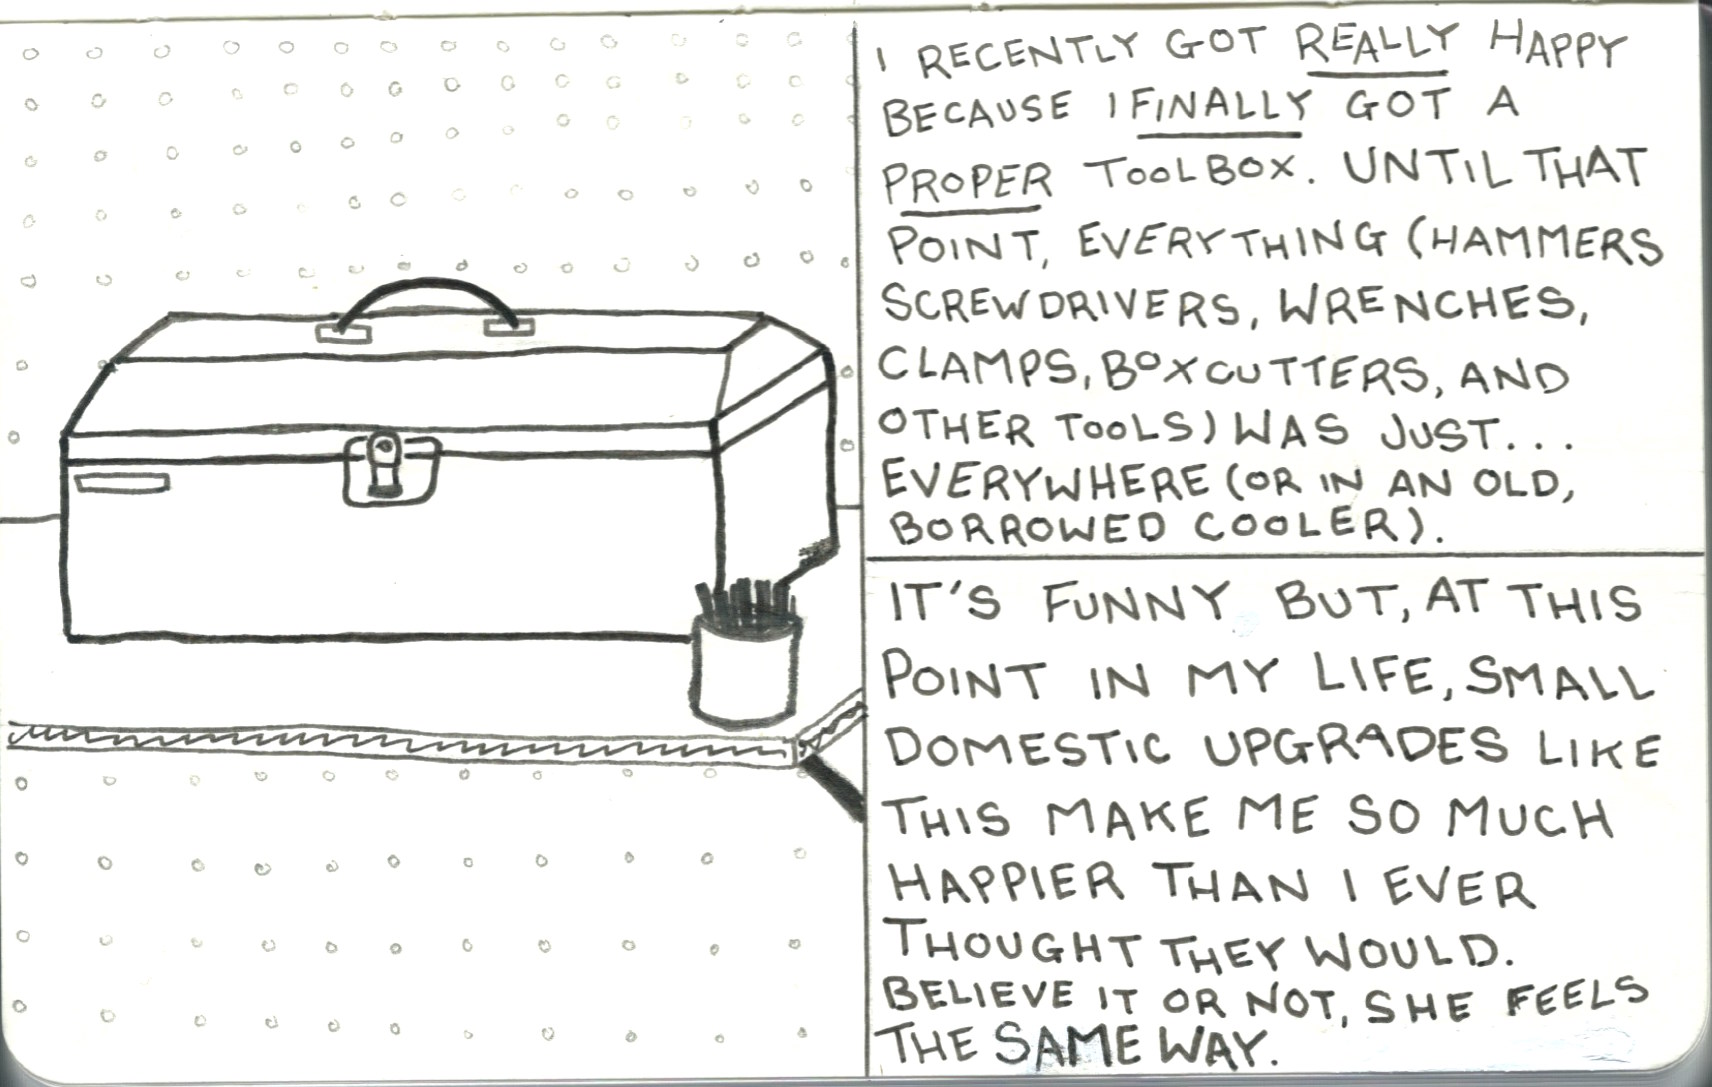 I RECENTLY GOT REALLY HAPPY
BECAUSE I FINALLY GOT A
PROPER TOOLBOX. UNTIL THAT
POINT, EVERYTHING (HAMMERS
SCREWDRIVERS, WRENCHES,
CLAMPS, BOXCUTTERS, AND
OTHER TOOLS) WAS JUST...
EVERYWHERE (OR IN AN OLD,
BORROWED COOLER).
IT'S FUNNY BUT, AT THIS
POINT IN MY LIFE, SMALL
DOMESTIC UPGRADES LIKE
THIS MAKE ME SO MUCH
HAPPIER THAN I EVER
THOUGHT THEY WOULD.
BELIEVE IT OR NOT, SHE FEELS
THE SAME WAY.